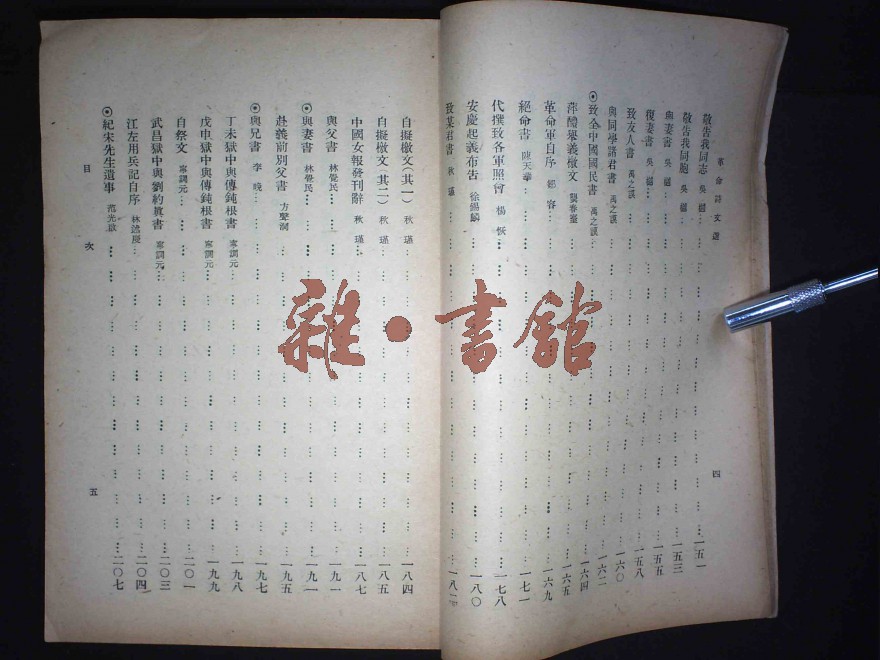 革命詩文選
四
敬告我同志 吳樾 一五一
敬告我同胞 吳樾 一五三
與妻書 吳樾 一五五
復妻書 吳樾 一五八
致友人書 禹之謨 一六〇
與同學諸君書 禹之謨 一六二
⊙致全中國國民書 禹之謨 一六四
萍醴舉義檄文 龔春臺 一六五
革命軍自序 鄒容 一六九
絕命書 陳天華 一七一
代撰致各軍照會 楊恢 一七八
安慶起義布告 徐錫麟 一八〇
致某君書 秋瑾 一八一
自擬檄文(其一) 秋瑾 一八四
自擬檄文(其二) 秋瑾 一八五
中國女報發刊辭 秋瑾 一八七
與父書 林覺民 一九一
⊙與妻書 林覺民 一九一
赴義前別父書 方聲洞 一九五
⊙與兄書 李晚 一九七
丁未獄中與傅鈍根書 寧調元 一九八
戊申獄中與傅鈍根書 寧調元 一九九
自祭文 寧調元 二〇一
武昌獄中與劉約眞書 寧調元 二〇三
江左用兵記自序 林述慶 二〇四
⊙紀宋先生遺事 范光啟 二〇七
目次
五
雜·書館